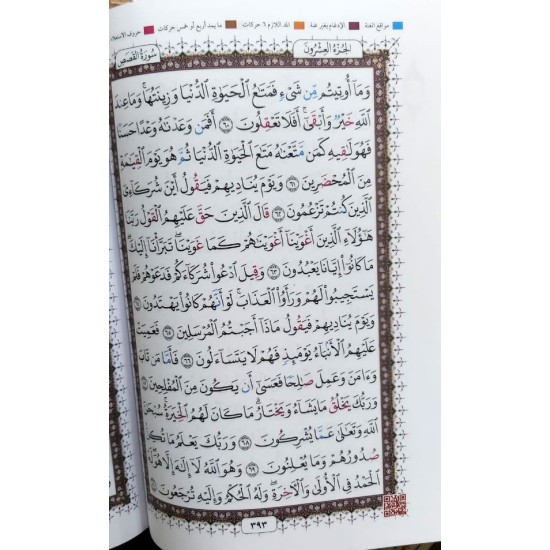 مواقع الغنة الإدغام بغير غنة المد اللازم ٦ حركات ما يمد أربع أو خمس حركات حروف الاستعلاء
سُورَةُ القَصَصِ الجُزءُ العِشْرُونَ
وَمَآ أُوتِيتُم مِّن شَىْءٍ فَمَتَٰعُ ٱلْحَيَوٰةِ ٱلدُّنْيَا وَزِينَتُهَا ۚ وَمَا عِندَ
ٱللَّهِ خَيْرٌ وَأَبْقَىٰٓ ۚ أَفَلَا تَعْقِلُونَ ٦٠ أَفَمَن وَعَدْنَٰهُ وَعْدًا حَسَنًا
فَهُوَ لَٰقِيهِ كَمَن مَّتَّعْنَٰهُ مَتَٰعَ ٱلْحَيَوٰةِ ٱلدُّنْيَا ثُمَّ هُوَ يَوْمَ ٱلْقِيَٰمَةِ
مِنَ ٱلْمُحْضَرِينَ ٦١ وَيَوْمَ يُنَادِيهِمْ فَيَقُولُ أَيْنَ شُرَكَآءِىَ
ٱلَّذِينَ كُنتُمْ تَزْعُمُونَ ٦٢ قَالَ ٱلَّذِينَ حَقَّ عَلَيْهِمُ ٱلْقَوْلُ رَبَّنَا
هَٰٓؤُلَآءِ ٱلَّذِينَ أَغْوَيْنَآ أَغْوَيْنَٰهُمْ كَمَا غَوَيْنَا ۖ تَبَرَّأْنَآ إِلَيْكَ ۖ
مَا كَانُوٓا۟ إِيَّانَا يَعْبُدُونَ ٦٣ وَقِيلَ ٱدْعُوا۟ شُرَكَآءَكُمْ فَدَعَوْهُمْ فَلَمْ
يَسْتَجِيبُوا۟ لَهُمْ وَرَأَوُا۟ ٱلْعَذَابَ ۚ لَوْ أَنَّهُمْ كَانُوا۟ يَهْتَدُونَ ٦٤
وَيَوْمَ يُنَادِيهِمْ فَيَقُولُ مَاذَآ أَجَبْتُمُ ٱلْمُرْسَلِينَ ٦٥ فَعَمِيَتْ
عَلَيْهِمُ ٱلْأَنۢبَآءُ يَوْمَئِذٍ فَهُمْ لَا يَتَسَآءَلُونَ ٦٦ فَأَمَّا مَن تَابَ
وَءَامَنَ وَعَمِلَ صَٰلِحًا فَعَسَىٰٓ أَن يَكُونَ مِنَ ٱلْمُفْلِحِينَ ٦٧
وَرَبُّكَ يَخْلُقُ مَا يَشَآءُ وَيَخْتَارُ ۗ مَا كَانَ لَهُمُ ٱلْخِيَرَةُ ۚ سُبْحَٰنَ
ٱللَّهِ وَتَعَٰلَىٰ عَمَّا يُشْرِكُونَ ٦٨ وَرَبُّكَ يَعْلَمُ مَا تُكِنُّ
صُدُورُهُمْ وَمَا يُعْلِنُونَ ٦٩ وَهُوَ ٱللَّهُ لَآ إِلَٰهَ إِلَّا هُوَ ۖ لَهُ
ٱلْحَمْدُ فِى ٱلْأُولَىٰ وَٱلْـَٔاخِرَةِ ۖ وَلَهُ ٱلْحُكْمُ وَإِلَيْهِ تُرْجَعُونَ ٧٠
٣٩٣